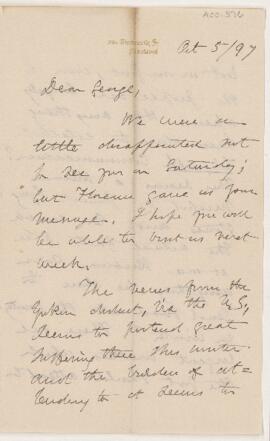 ACC-576
Oct 5/97
Dear George,
We were a
little disappointed not
to see you on Saturday;
but Florence gave us your
message. I hope you will
be able to visit us next
week.
The news from the
Yukon district, via the U.S,
seems to portend great
suffering there this winter
and the burden of at=
tending to it seems to